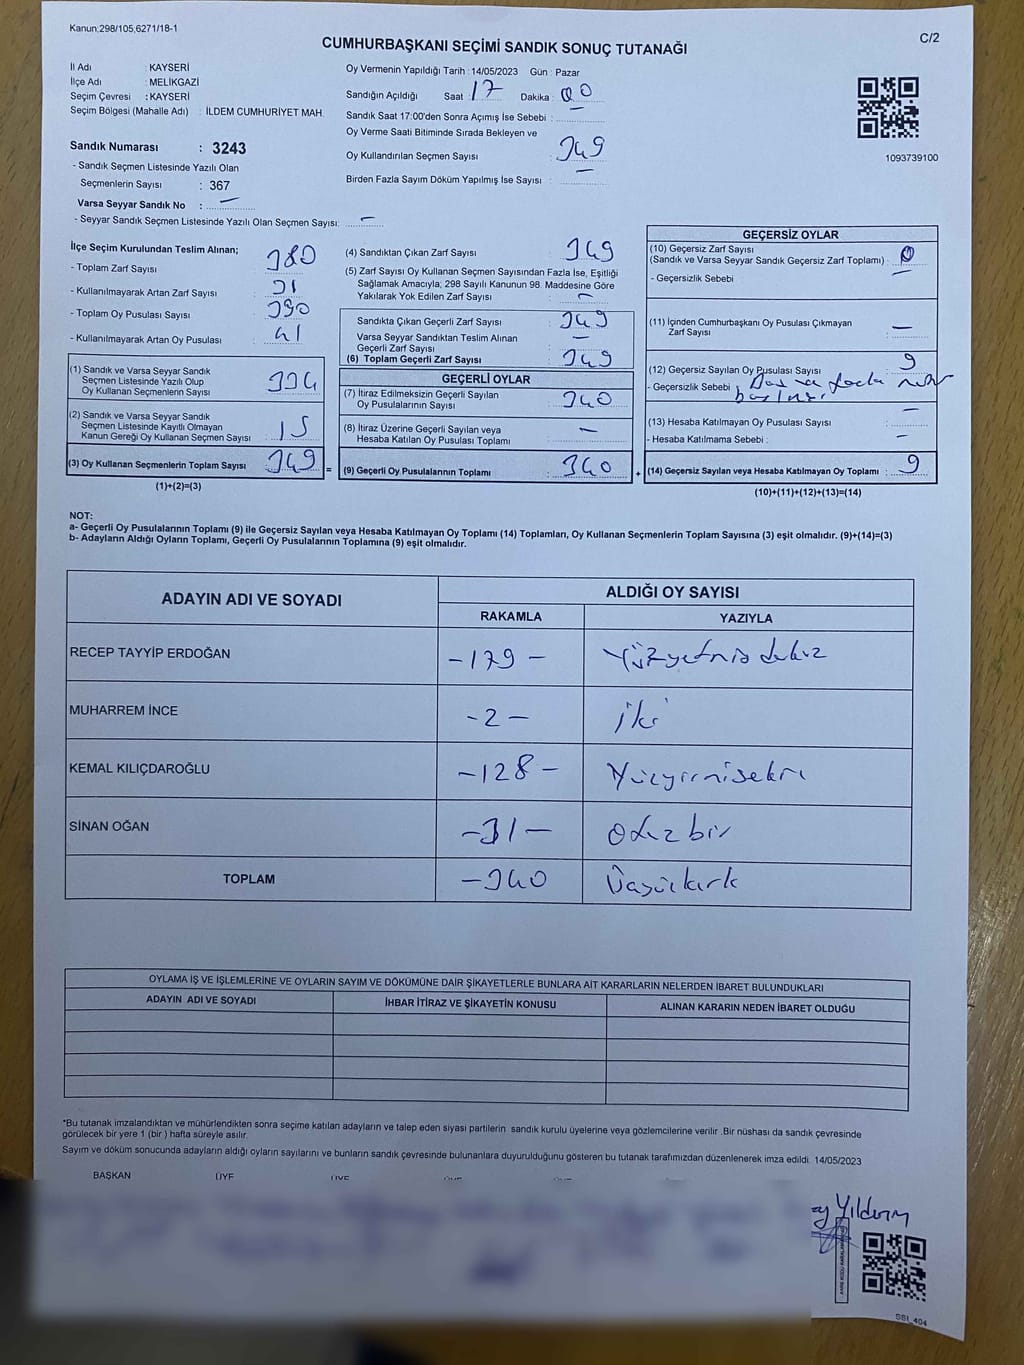 Kanun;298/105,6271/18-1
CUMHURBAŞKANI SEÇİMİ SANDIK SONUÇ TUTANAĞI
C/2
İl Adı : KAYSERİ
İlçe Adı : MELİKGAZİ
Seçim Çevresi : KAYSERİ
Seçim Bölgesi (Mahalle Adı) : İLDEM CUMHURİYET MAH.
Sandık Numarası : 3243
- Sandık Seçmen Listesinde Yazılı Olan
Seçmenlerin Sayısı : 367
Varsa Seyyar Sandık No : —
- Seyyar Sandık Seçmen Listesinde Yazılı Olan Seçmen Sayısı: —
Oy Vermenin Yapıldığı Tarih : 14/05/2023 Gün : Pazar
Sandığın Açıldığı Saat : 17 Dakika : 00
Sandık Saat 17:00'den Sonra Açımış İse Sebebi : —
Oy Verme Saati Bitiminde Sırada Bekleyen ve
Oy Kullandırılan Seçmen Sayısı : 349
Birden Fazla Sayım Döküm Yapılmış İse Sayısı : —
1093739100
İlçe Seçim Kurulundan Teslim Alınan;
- Toplam Zarf Sayısı : 380
- Kullanılmayarak Artan Zarf Sayısı : 31
- Toplam Oy Pusulası Sayısı : 390
- Kullanılmayarak Artan Oy Pusulası : 41
(1) Sandık ve Varsa Seyyar Sandık
Seçmen Listesinde Yazılı Olup
Oy Kullanan Seçmenlerin Sayısı : 334
(2) Sandık ve Varsa Seyyar Sandık
Seçmen Listesinde Kayıtlı Olmayan
Kanun Gereği Oy Kullanan Seçmen Sayısı : 15
(3) Oy Kullanan Seçmenlerin Toplam Sayısı : 349
(1)+(2)=(3)
=
(4) Sandıktan Çıkan Zarf Sayısı : 349
(5) Zarf Sayısı Oy Kullanan Seçmen Sayısından Fazla İse, Eşitliği
Sağlamak Amacıyla; 298 Sayılı Kanunun 98. Maddesine Göre
Yakılarak Yok Edilen Zarf Sayısı : —
Sandıkta Çıkan Geçerli Zarf Sayısı : 349
Varsa Seyyar Sandıktan Teslim Alınan
Geçerli Zarf Sayısı : —
(6) Toplam Geçerli Zarf Sayısı : 349
GEÇERLİ OYLAR
(7) İtiraz Edilmeksizin Geçerli Sayılan
Oy Pusulalarının Sayısı : 340
(8) İtiraz Üzerine Geçerli Sayılan veya
Hesaba Katılan Oy Pusulası Toplamı : —
(9) Geçerli Oy Pusulalarının Toplamı : 340
+
GEÇERSİZ OYLAR
(10) Geçersiz Zarf Sayısı
(Sandık ve Varsa Seyyar Sandık Geçersiz Zarf Toplamı) : 0
- Geçersizlik Sebebi —
(11) İçinden Cumhurbaşkanı Oy Pusulası Çıkmayan
Zarf Sayısı : —
(12) Geçersiz Sayılan Oy Pusulası Sayısı : 9
- Geçersizlik Sebebi :
(13) Hesaba Katılmayan Oy Pusulası Sayısı : —
- Hesaba Katılmama Sebebi : —
(14) Geçersiz Sayılan veya Hesaba Katılmayan Oy Toplamı : 9
(10)+(11)+(12)+(13)=(14)
NOT:
a- Geçerli Oy Pusulalarının Toplamı (9) ile Geçersiz Sayılan veya Hesaba Katılmayan Oy Toplamı (14) Toplamları, Oy Kullanan Seçmenlerin Toplam Sayısına (3) eşit olmalıdır. (9)+(14)=(3)
b- Adayların Aldığı Oyların Toplamı, Geçerli Oy Pusulalarının Toplamına (9) eşit olmalıdır.
ADAYIN ADI VE SOYADI
ALDIĞI OY SAYISI
RAKAMLA YAZIYLA
RECEP TAYYİP ERDOĞAN -179- Yüzyetmiş dokuz
MUHARREM İNCE -2- iki
KEMAL KILIÇDAROĞLU -128- Yüzyirmisekiz
SİNAN OĞAN -31- Otuz bir
TOPLAM -340 Üçyüzkırk
OYLAMA İŞ VE İŞLEMLERİNE VE OYLARIN SAYIM VE DÖKÜMÜNE DAİR ŞİKAYETLERLE BUNLARA AİT KARARLARIN NELERDEN İBARET BULUNDUKLARI
ADAYIN ADI VE SOYADI İHBAR İTİRAZ VE ŞİKAYETİN KONUSU ALINAN KARARIN NEDEN İBARET OLDUĞU
*Bu tutanak imzalandıktan ve mühürlendikten sonra seçime katılan adayların ve talep eden siyasi partilerin sandık kurulu üyelerine veya gözlemcilerine verilir .Bir nüshası da sandık çevresinde
görülecek bir yere 1 (bir ) hafta süreyle asılır.
Sayım ve döküm sonucunda adayların aldığı oyların sayılarını ve bunların sandık çevresinde bulunanlara duyurulduğunu gösteren bu tutanak tarafımızdan düzenlenerek imza edildi. 14/05/2023
BAŞKAN ÜYE ÜYE
Yıldırım
SSI_404